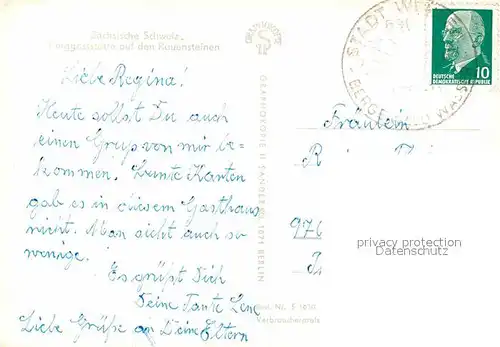 Sächsische Schweiz
Berggaststätte auf den Rauensteinen
Liebe Regina!
Heute sollst Du auch
einen Gruß von mir be-
kommen. Bunte Karten
gab es in diesem Gasthaus
nicht. Man sieht auch so
wenige.
Es grüßt Dich
Deine Tante Lene
Liebe Grüße an Deine Eltern
GRAPHOKOPIE H. SANDER KG 1071 BERLIN
Verbraucherpreis
STADT WE
10
DEUTSCHE
DEMOKRATISCHE REPUBLIK
Fräulein
R
976
privacy protection
Datenschutz